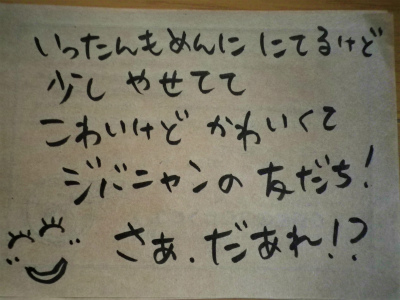 いったんもめんに にてるけど
少し やせてて
こわいけど かわいくて
ジバニャンの 友だち!
さぁ、だあれ!?